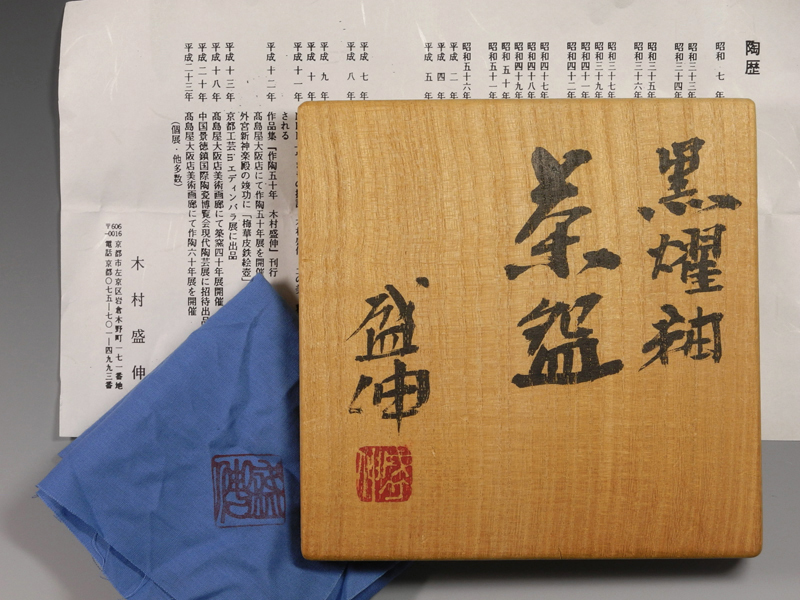 陶歴
昭和 七 年
昭和三十三年
昭和三十四年
昭和三十五年
昭和三十六年
昭和三十七年
昭和三十九年
昭和四十一年
昭和四十二年
昭和四十七年
昭和四十八年
昭和四十九年
昭和五十年
昭和五十一年
昭和五十六年
平成 二 年
平成 四 年
平成 五 年
平成 七 年
平成 八 年
平成 九 年
平成 十 年
平成十一年
される
平成十二年 作品集「作陶五十年 木村盛伸」刊行
髙島屋大阪店にて作陶五十年展を開催
外宮新神楽殿の竣功に「梅華皮鉄絵壺」
平成十三年 京都工芸inエディンバラ展に出品
平成十八年 髙島屋大阪店美術画廊にて築窯四十年展開催
平成二十年 中国景徳鎮国際陶瓷博覧会現代陶芸展に招待出品
平成二十三年 髙島屋大阪店美術画廊にて作陶六十年展を開催
(個展・他多数)
木村盛伸
〒606-0016 京都市左京区岩倉木野町一七一番地
電話京都〇七五―七〇一―四九九三番
黒耀釉
茶盌
盛伸